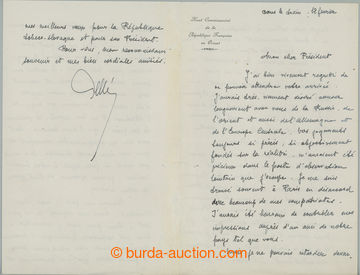 Haut Commissariat
de la
République Française
en Orient
sous le février
Mon cher Président
J'ai bien vivement regretté de
ne pouvoir attendre votre arrivée
J'aurais désiré, vraiment désiré causer
longuement avec vous de la Russie, de
l'orient et aussi de l'Allemagne et
de l'Europe Centrale. Vos jugements
toujours si précis, si
fondés sur la réalité m'auraient été
précieux dans le poste d'observation
lointain que j'occupe. Je me suis
trouvé souvent à Paris en désaccord
avec beaucoup de mes compatriotes.
J'aurais été heureux de contrôler mes
impressions auprès d'un ami de notre
pays tel que vous.
je ne pouvais retarder
mes meilleurs vœux pour la République
tchéco-slovaque et pour son Président.
Pour vous, mon reconnaissant
souvenir et mes bien cordiales amitiés.
burda-auction.com